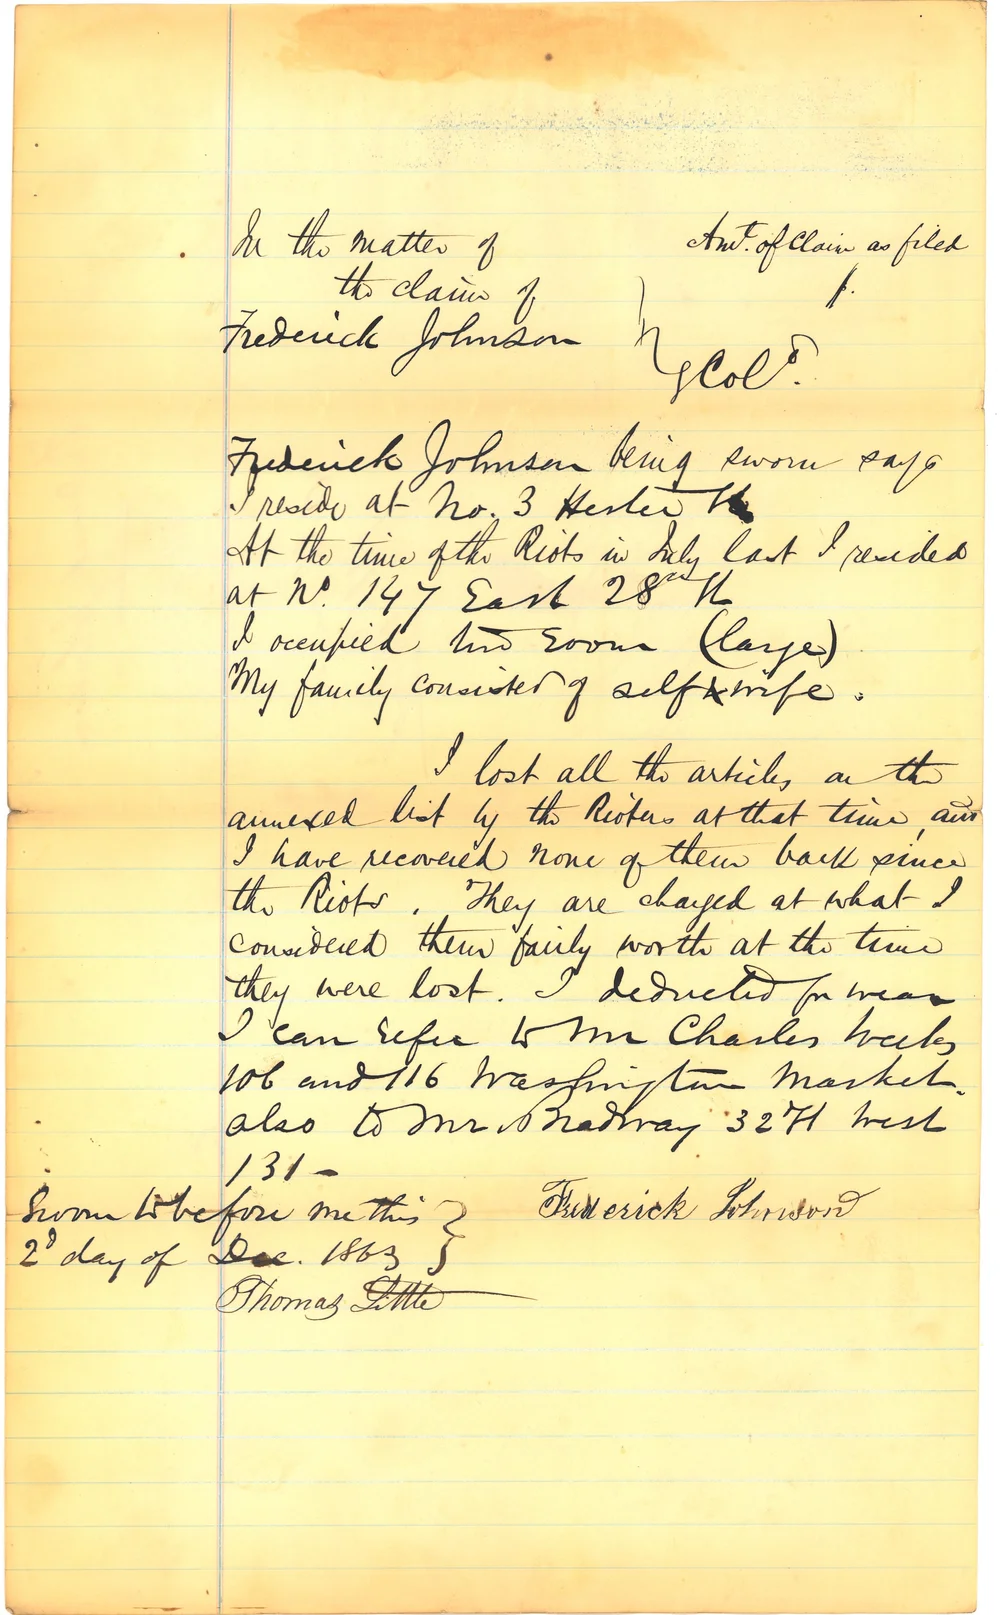 In the matter of
the claim of
Frederick Johnson
Amt. of Claim as filed
$.
Cold.
Frederick Johnson being sworn says
I reside at No. 3 Hester St
At the time of the Riots in July last I resided
at No. 147 East 28th St
I occupied two room (large)
My family consisted of self & wife.
I lost all the articles on the
annexed list by the Rioters at that time, and
I have recovered none of them back since
the Riots. They are charged at what I
considered them fairly worth at the time
they were lost. I deducted for wear
I can refer to Mr Charles Weeks
106 and 116 Washington Market.
also to Mr Bradway 32 St West
131 -
Sworn to before me this
2d day of Dec. 1863
Frederick Johnson
Thomas Little